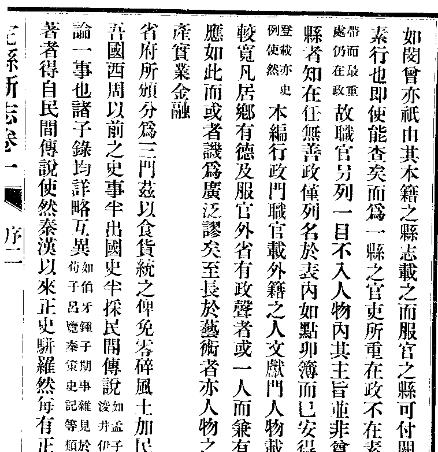 如閔曾亦祇由其本籍之縣志載之而服官之縣可付闕
素行也即使能查矣而爲一縣之官吏所重在政不在素
帶而最重
處仍在政
故職官另列一目不入人物內其主旨並非
縣者知在任無善政僅列名於表內如點卯簿而已安得
登載亦史
例使然
本編行政門職官載外籍之人文獻門人物載
較寬凡居鄉有德及服官外省有政聲者或一人而兼有
應如此而或者譏爲廣泛謬矣至長於藝術者亦人物之
產實業金融
省府所頒分爲三門茲以食貨統之俾免零碎風土加民
吾國西周以前之史事半出國史半採民間傳說
如孟子
浚井伊
論一事也諸子錄均詳略互異
如伯牙鍾子期事雜見於
荀子呂覽秦策史記等
著者得自民間傳說使然秦漢以來正史駢羅然每有正
縣新志卷一
序二